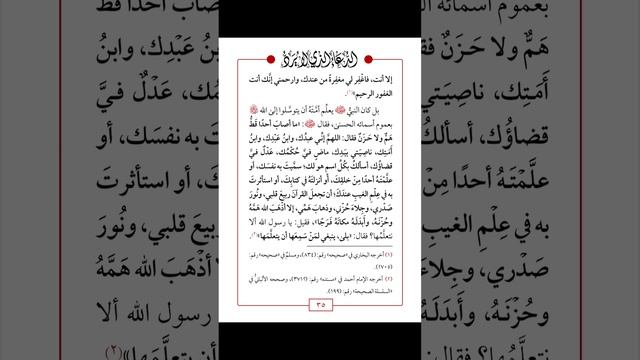 الدُّعَاءُ الَّذِي لَا يُرَدُّ
إلا أنت، فاغْفِر لي مغفِرةً من عندك، وارحمني إنَّك أنت
الغفور الرحيم»(١).
بل كان النبيُّ ﷺ يعلِّم أمَّتَهُ أن يتوسَّلوا إلىٰ الله ﷻ
بعموم أسمائه الحسنىٰ، فقال ﷺ: «ما أصابَ أحدًا قطُّ
همٌّ ولا حَزَنٌ فقال: اللهمَّ إنِّي عبدُك، وابنُ عَبْدِك، وابنُ
أَمَتِك، ناصِيَتي بيَدِك، ماضٍ فيَّ حُكْمُك، عَدْلٌ فيَّ
قضاؤُك، أسألكُ بكُلِّ اسمٍ هو لك؛ سمَّيتَ به نفسَك، أو
علَّمْتَهُ أحدًا مِنْ خلقِك، أو أنزلتَهُ في كتابِك، أو استأثرتَ
به في عِلْمِ الغيبِ عندَك؛ أن تجعلَ القرآنَ ربيعَ قلبي، ونُورَ
صَدْري، وجِلاءَ حُزْني، وذهابَ همِّي، إلا أذْهَبَ الله هَمَّهُ
وحُزْنَهُ، وأَبدَلَهُ مكانَهُ فَرَجًا»، فقيل: يا رسول الله ألا
نتعلَّمُها؟ فقال: «بلىٰ، ينبغي لمَنْ سَمِعَها أن يتعلَّمَها»(٢).
(١) أخرجه البخاري في «صحيحه» رقم: (٨٣٤)، ومسلم في «صحيحه» رقم:
(٢٧٠٥).
(٢) أخرجه الإمام أحمد في «مسنده» رقم: (٣٧١٢)، وصححه الألبانيُّ في
«السلسلة الصحيحة» رقم: (١٩٩).
٣٥